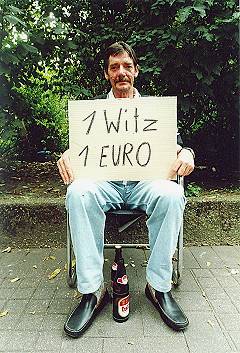 1 Witz
1 EURO